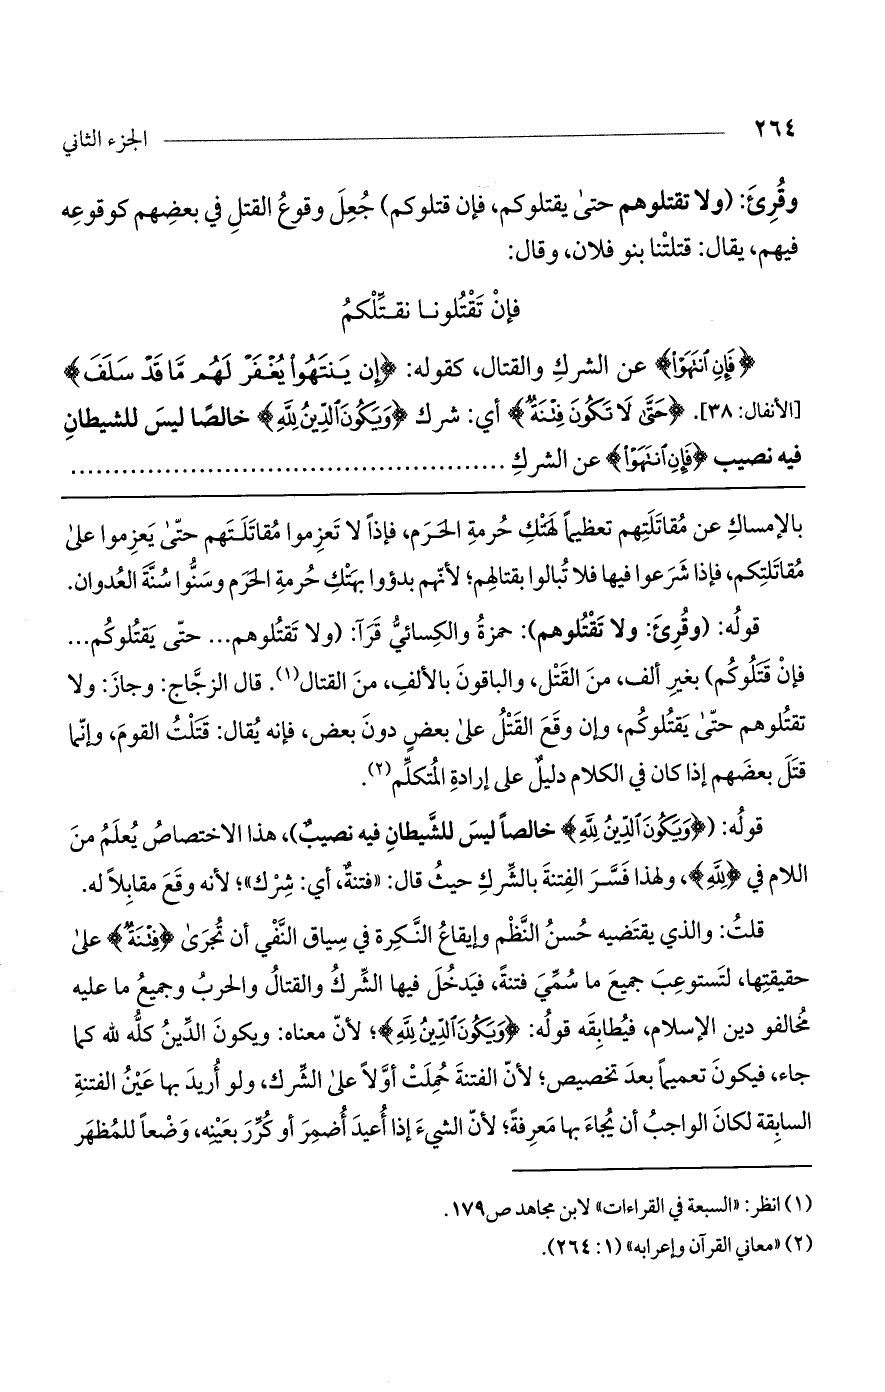 ٢٦٤ الجزء الثاني
وقُرِئَ: (ولا تقتلوهم حتىٰ يقتلوكم، فإن قتلوكم) جُعِلَ وقوعُ القتلِ في بعضِهم كوقوعِه
فيهم، يقال: قتلتْنا بنو فلان، وقال:
فإنْ تَقْتُلونــا نقــتِّلْكمُ
﴿فَإِنِ ٱنتَهَوْا۟﴾ عن الشركِ والقتال، كقوله: ﴿إِن يَنتَهُوا۟ يُغْفَرْ لَهُم مَّا قَدْ سَلَفَ﴾
[الأنفال: ٣٨]. ﴿حَتَّىٰ لَا تَكُونَ فِتْنَةٌ﴾ أي: شرك ﴿وَيَكُونَ ٱلدِّينُ لِلَّهِ﴾ خالصًا ليسَ للشيطانِ
فيه نصيب ﴿فَإِنِ ٱنتَهَوْا۟﴾ عن الشركِ ..................................................
بالإمساكِ عن مُقاتَلَتِهم تعظيماً لهَتْكِ حُرمةِ الحَرَم، فإذاً لا تَعزِموا مُقاتَلَـتَهم حتّىٰ يَعزِموا علىٰ
مُقاتَلتِكم، فإذا شَرَعوا فيها فلا تُبالوا بقتالِهم؛ لأنّهم بدؤوا بهَتْكِ حُرمةِ الحَرَم وسَنُّوا سُنَّةَ العُدوان.
قولُه: (وقُرِئَ: ولا تَقْتُلوهم): حمزةُ والكِسائيُّ قَرَآ: (ولا تَقتُلوهم... حتّى يَقتُلوكُم...
فإنْ قَتَلُوكُم) بغيرِ ألف، منَ القَتْل، والباقونَ بالألفِ، منَ القتال(١). قال الزجَّاج: وجازَ: ولا
تقتُلوهم حتّىٰ يَقتُلوكُم، وإن وقَعَ القَتْلُ علىٰ بعضٍ دونَ بعض، فإنه يُقال: قَتَلْتُ القومَ، وإنّما
قتَلَ بعضَهم إذا كان في الكلام دليلٌ على إرادةِ المُتكلِّم(٢).
قولُه: (﴿وَيَكُونَ ٱلدِّينُ لِلَّهِ﴾ خالصاً ليسَ للشَّيطانِ فيه نصيبٌ)، هذا الاختصاصُ يُعلَمُ منَ
اللام في ﴿لِلَّهِ﴾، ولهذا فَسَّرَ الفِتنةَ بالشِّركِ حيثُ قال: «فتنةٌ، أي: شِرْك»؛ لأنه وقَعَ مقابلاً له.
قلتُ: والذي يقتَضيه حُسنُ النَّظْم وإيقاعُ النَّـكِرة في سِياق النَّفْي أن تُجرَىٰ ﴿فِتْنَةٌ﴾ علىٰ
حقيقتِها، لتَستوعِبَ جميعَ ما سُمِّيَ فتنةً، فيَدخُلَ فيها الشِّركُ والقتالُ والحربُ وجميعُ ما عليه
مُخالفو دين الإسلام، فيُطابِقَه قولُه: ﴿وَيَكُونَ ٱلدِّينُ لِلَّهِ﴾؛ لأنّ معناه: ويكونَ الدِّينُ كلُّه لله كما
جاء، فيكونَ تعميماً بعدَ تخصيص؛ لأنّ الفتنةَ حُمِلَتْ أوّلاً علىٰ الشِّرك، ولو أُريدَ بها عَيْنُ الفتنةِ
السابِقة لكانَ الواجبُ أن يُجاءَ بها مَعرِفةً؛ لأنّ الشيءَ إذا أُعيدَ أُضمِرَ أو كُرِّرَ بعَيْنِه، وَضْعاً للمُظهَر
(١) انظر: «السبعة في القراءات» لابن مجاهد ص١٧٩.
(٢) «معاني القرآن وإعرابه» (١: ٢٦٤).